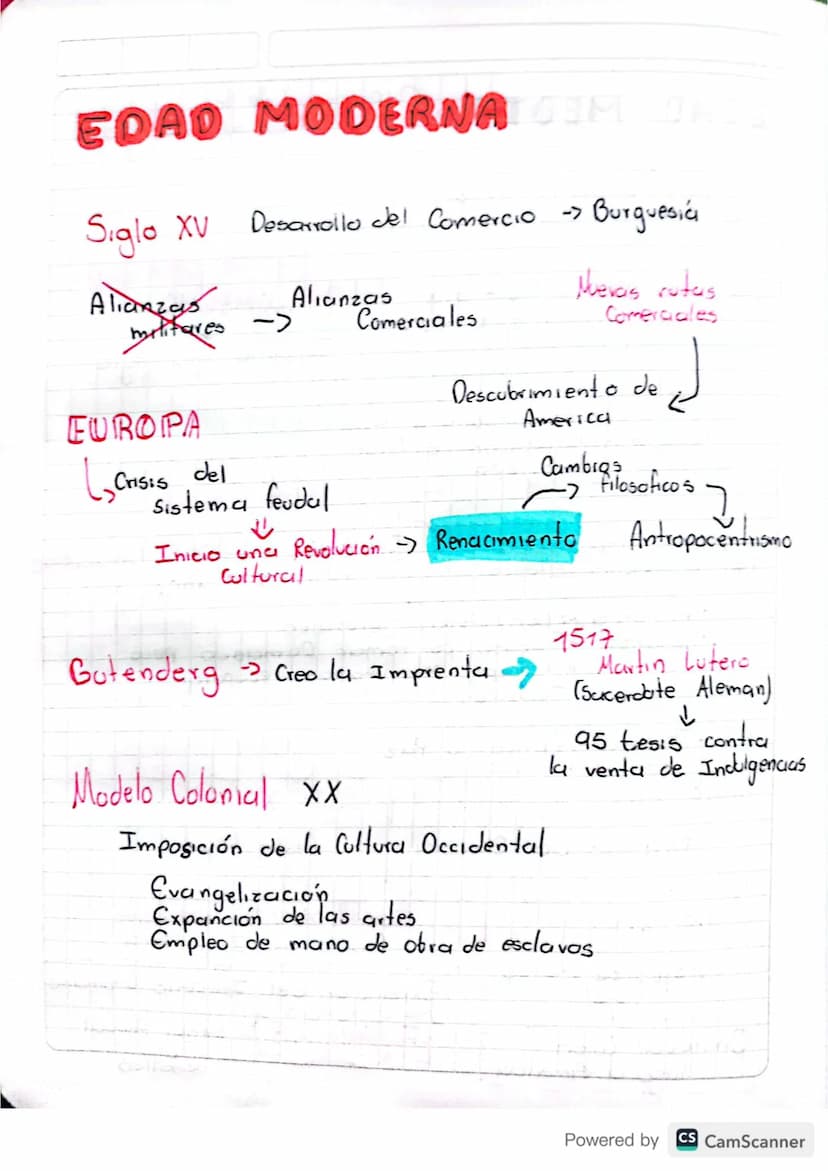 EDAD MODERNA
Siglo XV Desarrollo del Comercio -> Burguesiá
Alianzas
militares -> Alianzas
Comerciales
Nuevas rutas
Comerciales
Descubrimiento de
America
EUROPA
Crisis del
sistema feudal
Inicio una Revolución -> Renacimiento
Cultural
Cambios
filosoficos
Antropocentrismo
Gutenderg -> Creo la Imprenta ->
1517
Martin Lutero
(Sacerdote Aleman)
95 tesis contra
la venta de Indulgencias
Modelo Colonial XX
Imposición de la Cultura Occidental
Evangelización
Expanción de las artes
Empleo de mano de obra de esclavos
Powered by CS CamScanner